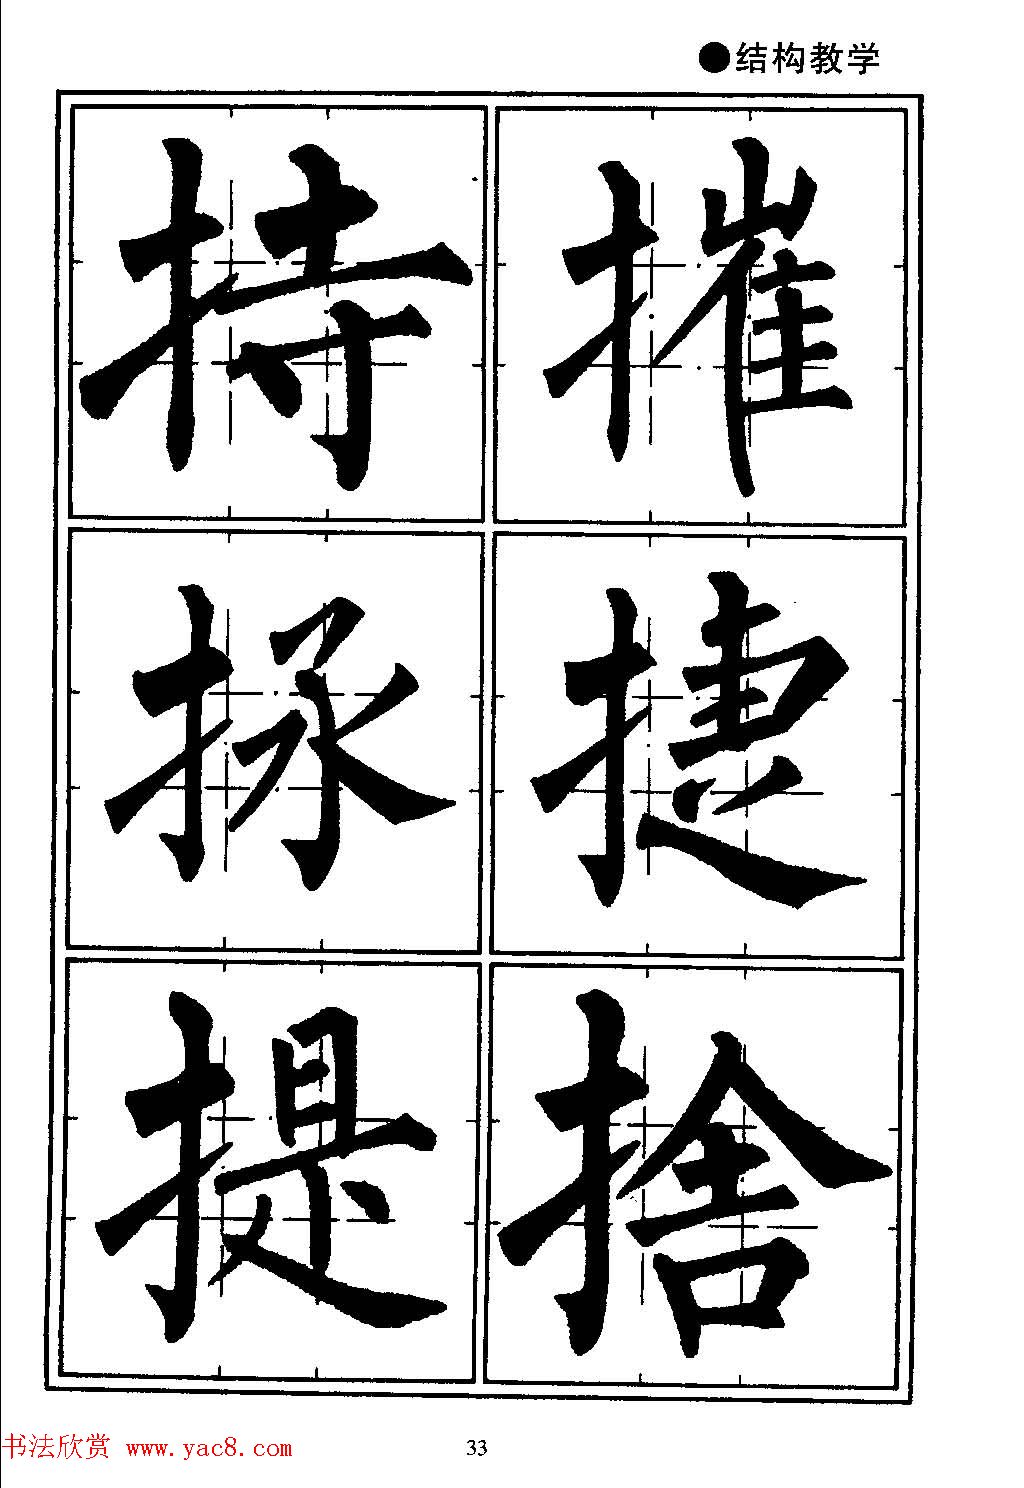 ●结构教学
持 摧
拯 捷
提 捨
书法欣赏 www.yac8.com 33